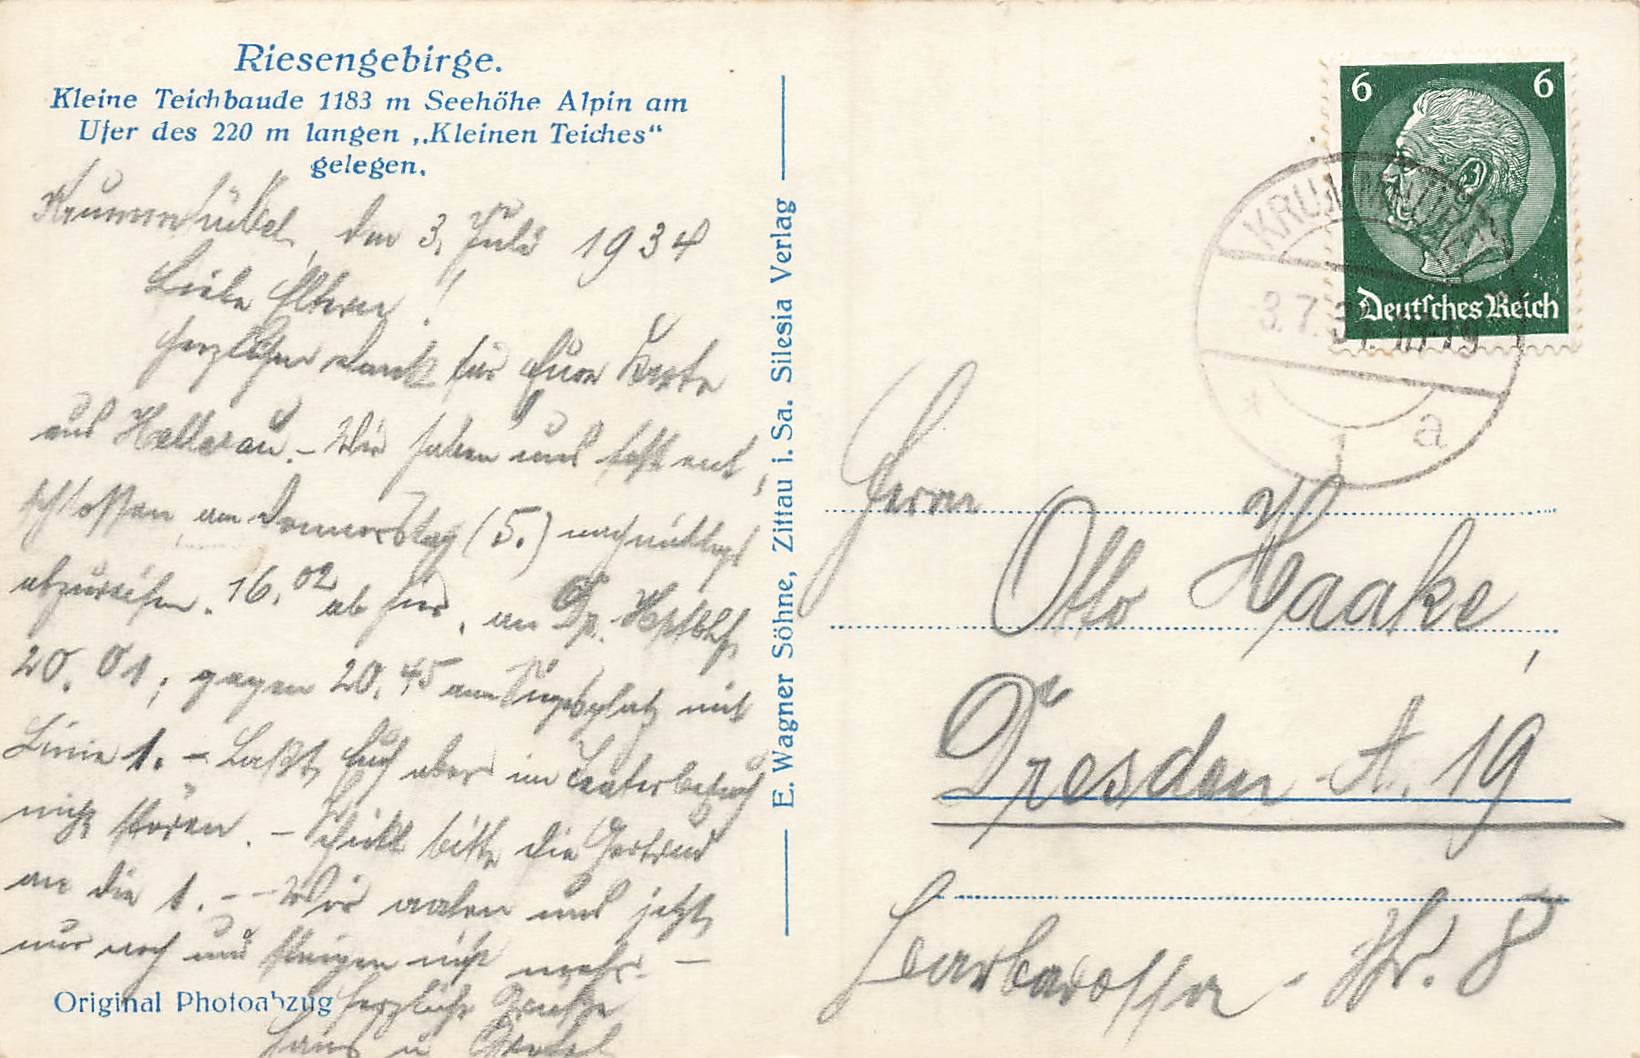 Riesengebirge.
Kleine Teichbaude 1183 m Seehöhe Alpin am
Ufer des 220 m langen „Kleinen Teiches“
gelegen.
Krummhübel, den 3. Juli 1934
Liebe Eltern!
Herzlichen Dank für Eure Karte
aus Hellerau. – Wir haben uns fast ent,
schlossen, am Donnerstag (5.) nachmittags
abzureisen. 16.02 ab hier, an Dr. Hptbhf.
20.01; gegen 20.45 am mit
Linie 1. – Laßt Euch aber im Theaterbesuch
nicht stören. – Schickt bitte die Gertrud
an die 1. – – Wir aalen uns jetzt
nur noch und steigen nicht mehr. –
Herzliche Grüße
Hans u.
Original Photoabzug
E. Wagner Söhne, Zittau i. Sa. Silesia Verlag
6 6
Deutsches Reich
KRUMMHÜBEL
3.7.34
* 1 a
Herrn
Otto Haake,
Dresden A. 19
Barbarossa-Str. 8